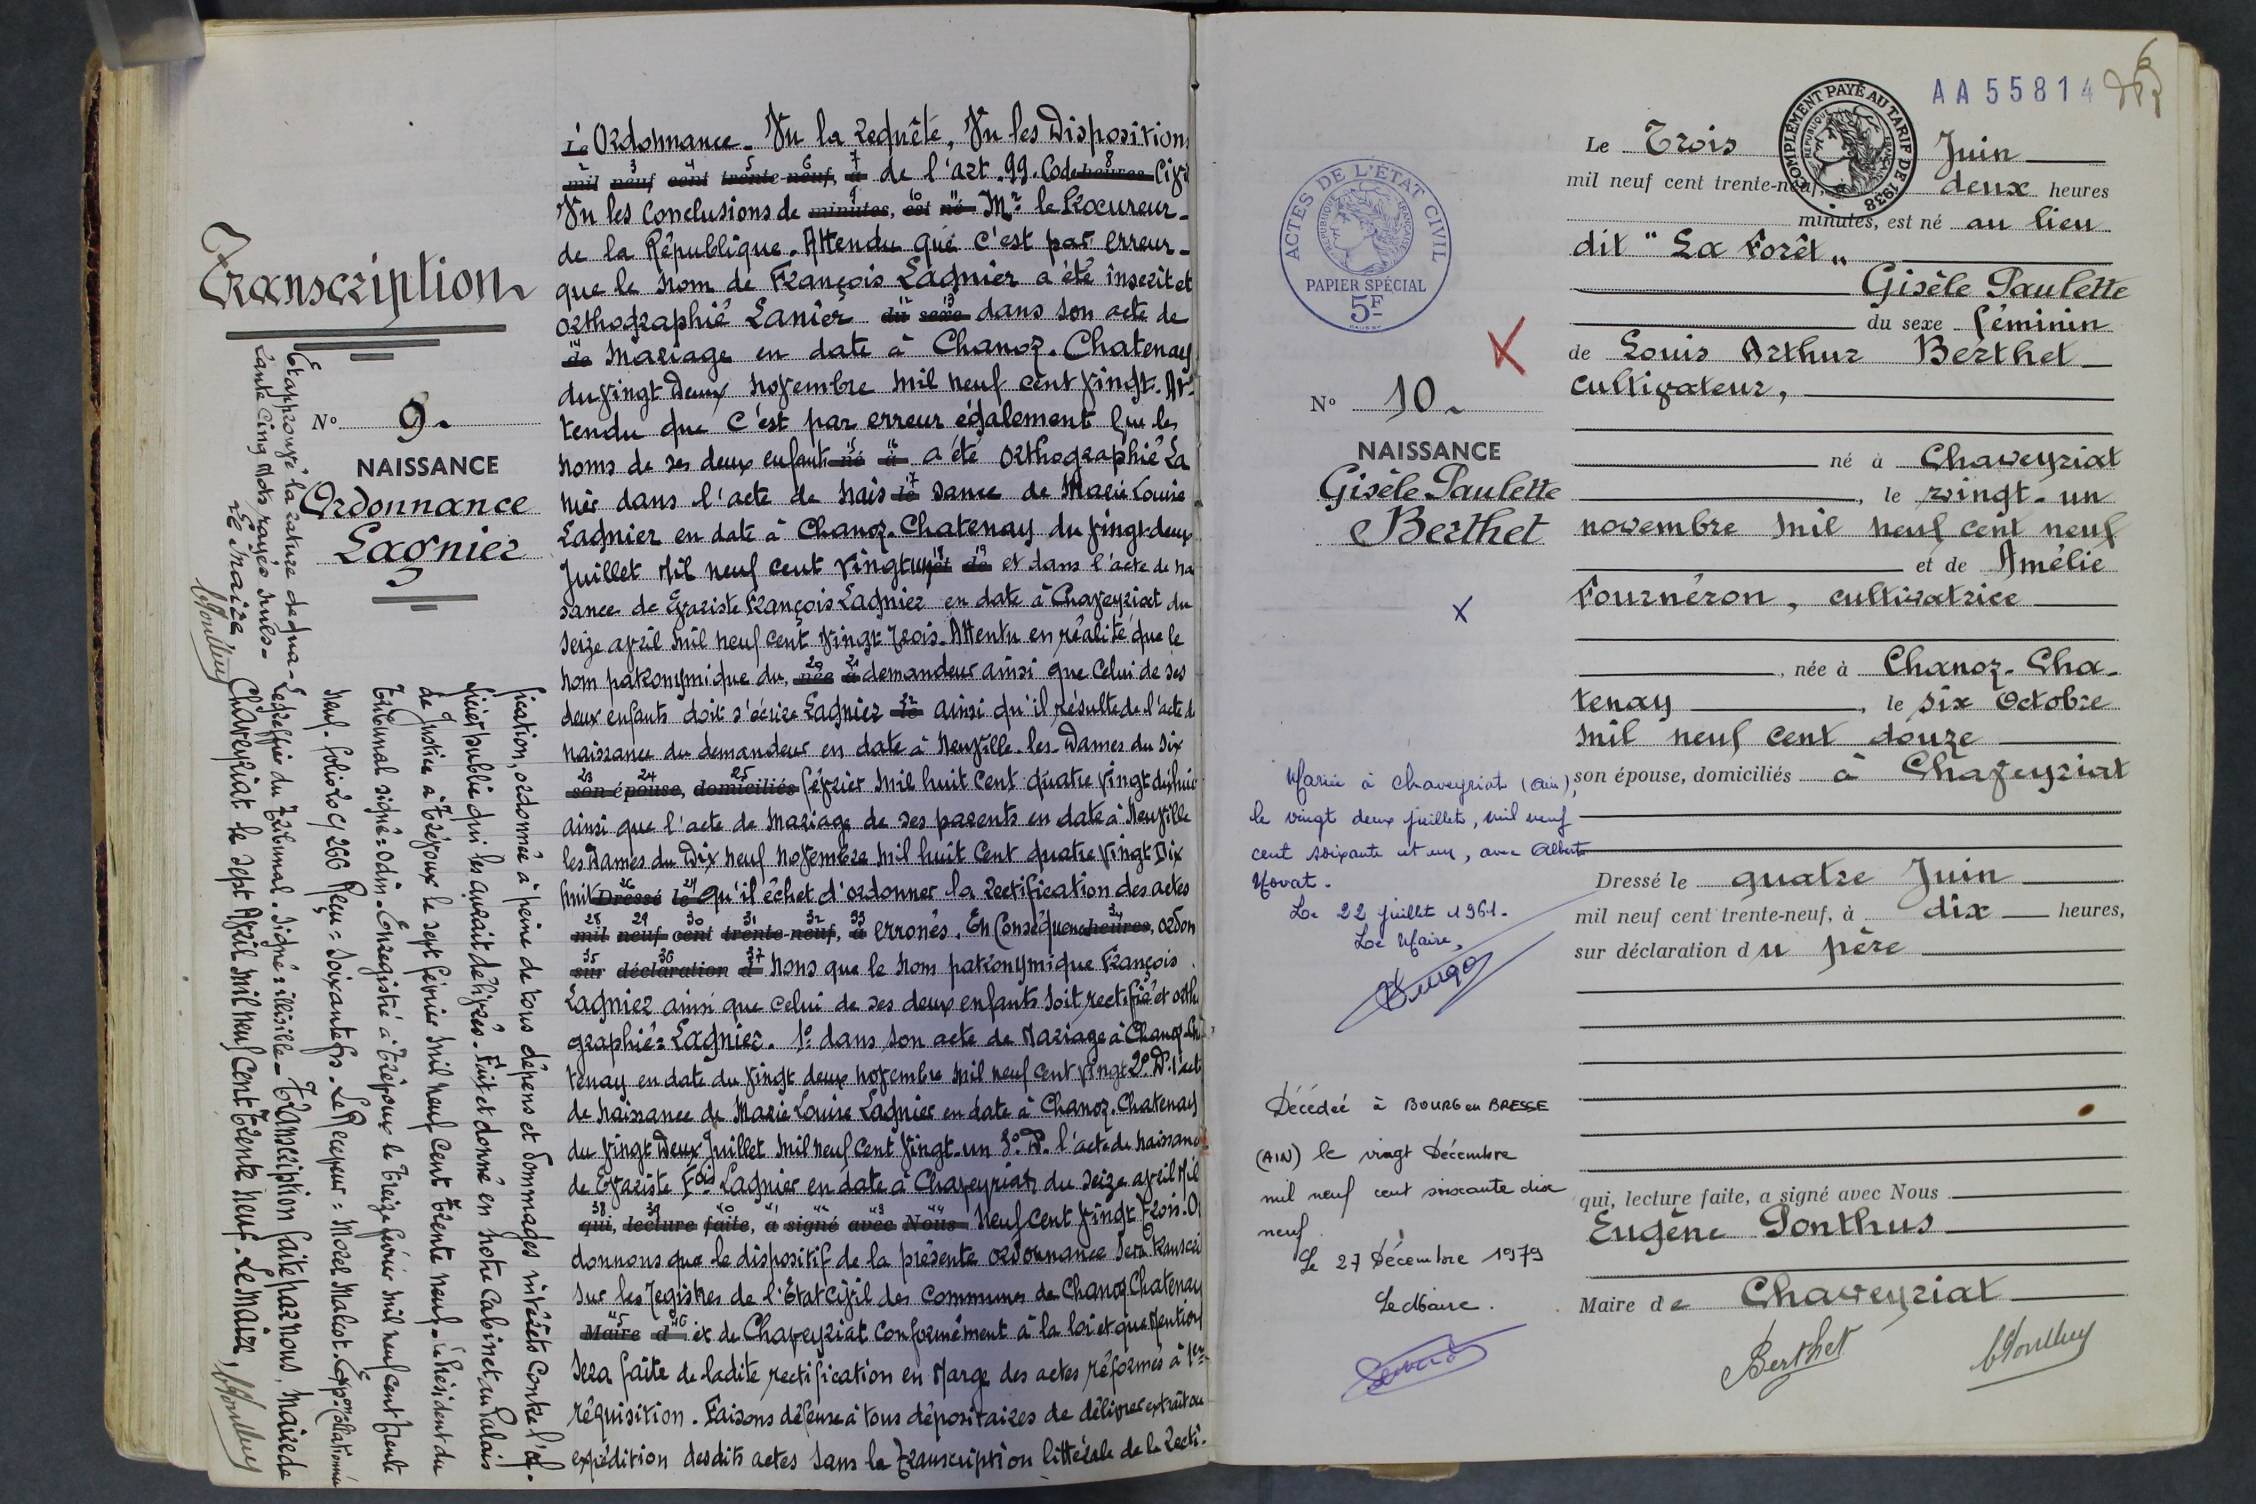 Transcription
N° 9.
NAISSANCE
Ordonnance
Lagnier
Le Ordonnance. Vu la requête, Vu les Dispositions
mil neuf cent trente-neuf, à de l'art. 99. Code heures Civil
Vu les conclusions de minutes, est né Mr le Procureur
de la République. Attendu que c'est par erreur
que le nom de François Lagnier a été inscrit et
orthographié Lanier du sexe dans son acte de
de Mariage en date à Chanoz-Chatenay
du vingt deux novembre mil neuf cent vingt. At-
tendu que c'est par erreur également que les
noms de ses deux enfants né à a été orthographié La
nier dans l'acte de nais le sance de Marie Louise
Lagnier en date à Chanoz-Chatenay du vingt-deux
Juillet Mil neuf cent vingt un et de et dans l'acte de nai
sance de Evariste François Lagnier en date à Chaveyriat du
seize avril mil neuf cent vingt trois. Attendu en réalité que le
nom patronymique du, née à demandeur ainsi que celui de ses
deux enfants doit s'écrire Lagnier le ainsi qu'il résulte de l'acte de
naissance du demandeur en date à Neuville-les-Dames du six
son épouse, domiciliés février mil huit cent quatre vingt dix huit
ainsi que l'acte de mariage de ses parents en date à Neuville
les Dames du Dix neuf novembre mil huit cent quatre vingt Dix
huit Dressé le qu'il échet d'ordonner la rectification des actes
mil neuf cent trente-neuf, à erronés. En Conséquence heures, ordon
sur déclaration d nons que le nom patronymique François
Lagnier ainsi que celui de ses deux enfants soit rectifié et ortho
graphié: Lagnier. 1° dans son acte de Mariage à Chanoz-Cha
tenay en date du vingt deux novembre mil neuf cent vingt 2° D. l'acte
de naissance de Marie Louise Lagnier en date à Chanoz-Chatenay
du vingt Deux Juillet mil neuf cent vingt-un 3° D. l'acte de naissance
de Evariste Fois Lagnier en date à Chaveyriat, du seize avril Mil
qui, lecture faite, a signé avec Nous neuf cent vingt Trois. Or
donnons que le dispositif de la présente ordonnance sera transcri
sur les registres de l'Etat Civil des communes de Chanoz Chatenay
Maire d et de Chaveyriat conformément à la loi et que Mention
sera faite de ladite rectification en Marge des actes réformés à 1re
réquisition. Faisons défense à tous dépositaires de délivrer extrait ou
expédition desdits actes sans la transcription littérale de la recti-
fication, ordonnée à peine de tous dépens et dommages intérêts contre l'of-
ficier public qui les aurait délivrés. Fait et donné en notre cabinet au Palais
de Justice à Trévoux le sept février mil neuf cent trente neuf. Le Président du
Tribunal signé: Odin. Enregistré à Trévoux le treize février mil neuf cent trente
neuf. folio 40 Cy 266 Reçu: Soixante frs. Le Receveur: Morel Malcot. Exp.on collationnée
Le Greffier du Tribunal. Signé: illisible. Transcription faite par nous, Maire de
Chaveyriat le sept Avril mil neuf cent trente neuf. Le Maire,
Et approuvé la rature de qua-
rante cinq mots rayés nuls.
Le Maire
AA55814
COMPLÉMENT PAYÉ AU TARIF DE 1938
RÉPUBLIQUE FRANÇAISE
ACTES DE L'ÉTAT CIVIL
RÉPUBLIQUE FRANÇAISE
PAPIER SPÉCIAL
5F
N° 10.
NAISSANCE
Gisèle Paulette
Berthet
Le Trois Juin
mil neuf cent trente-neuf, deux heures
minutes, est né au lieu
dit "La Forêt"
Gisèle Paulette
du sexe féminin
de Louis Arthur Berthet
cultivateur,
né à Chaveyriat
, le vingt-un
novembre mil neuf cent neuf
et de Amélie
Fournéron, cultivatrice
, née à Chanoz-Cha-
tenay, le six Octobre
mil neuf cent douze
son épouse, domiciliés à Chaveyriat
Dressé le quatre Juin
mil neuf cent trente-neuf, à dix heures,
sur déclaration du père
qui, lecture faite, a signé avec Nous
Eugène Ponthus
Maire de Chaveyriat
Berthet
Mariée à Chaveyriat (Ain),
le vingt deux juillet, mil neuf
cent soixante et un, avec Albert
Novat.
Le 22 juillet 1961.
Le Maire,
Décédée à BOURG en BRESSE
(AIN) le vingt Décembre
mil neuf cent soixante dix
neuf
Le 27 Décembre 1979
Le Maire.